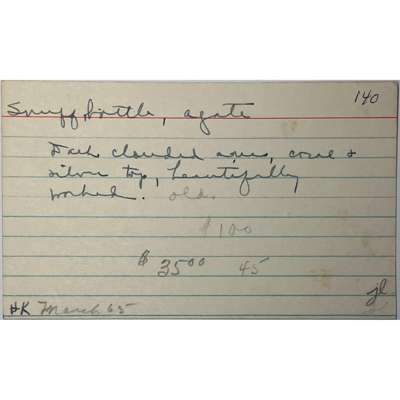 140
Snuff bottle, agate
Dark clouded area, coral +
silver top, beautifully
worked. old.
$100
$ 35 00 45
HK March 65